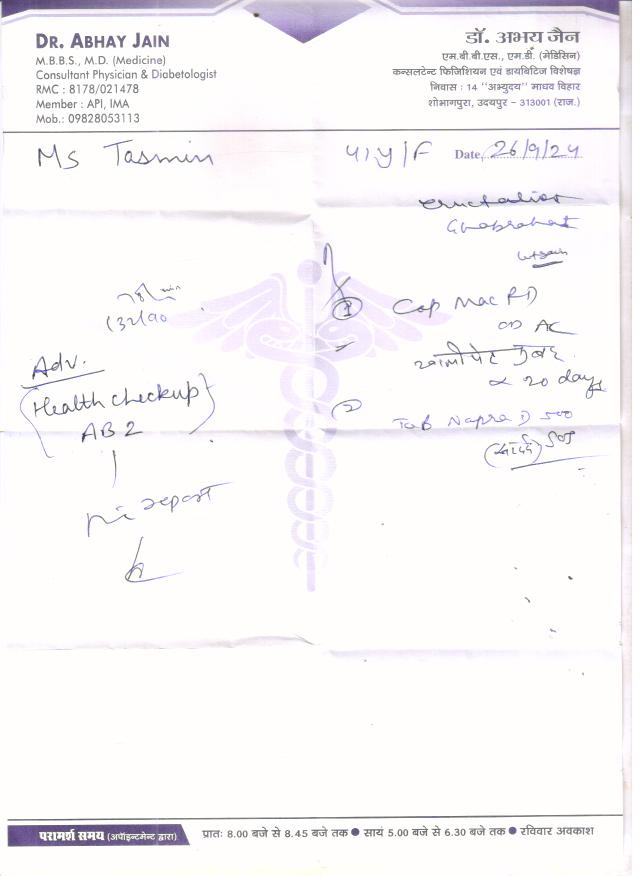 DR. ABHAY JAIN
M.B.B.S., M.D. (Medicine)
Consultant Physician & Diabetologist
RMC : 8178/021478
Member : API, IMA
Mob.: 09828053113
डॉ. अभय जैन
एम.बी.बी.एस., एम.डी. (मेडिसिन)
कन्सलटेन्ट फिजिशियन एवं डायबिटिज विशेषज्ञ
निवास : 14 "अभ्युदय" माधव विहार
शोभागपुरा, उदयपुर - 313001 (राज.)
Ms Tasmin
41y/F
Date 26/9/24
Eructation
Ghabrahat
132/90
① Cap Mac RD
OD AC
खालीपेट सुबह
x 20 days
Adv.
(Health checkup)
AB2
② Tab Napra D 500
SOS
report
परामर्श समय (अपॉइन्टमेन्ट द्वारा)
प्रातः 8.00 बजे से 8.45 बजे तक ● सायं 5.00 बजे से 6.30 बजे तक ● रविवार अवकाश